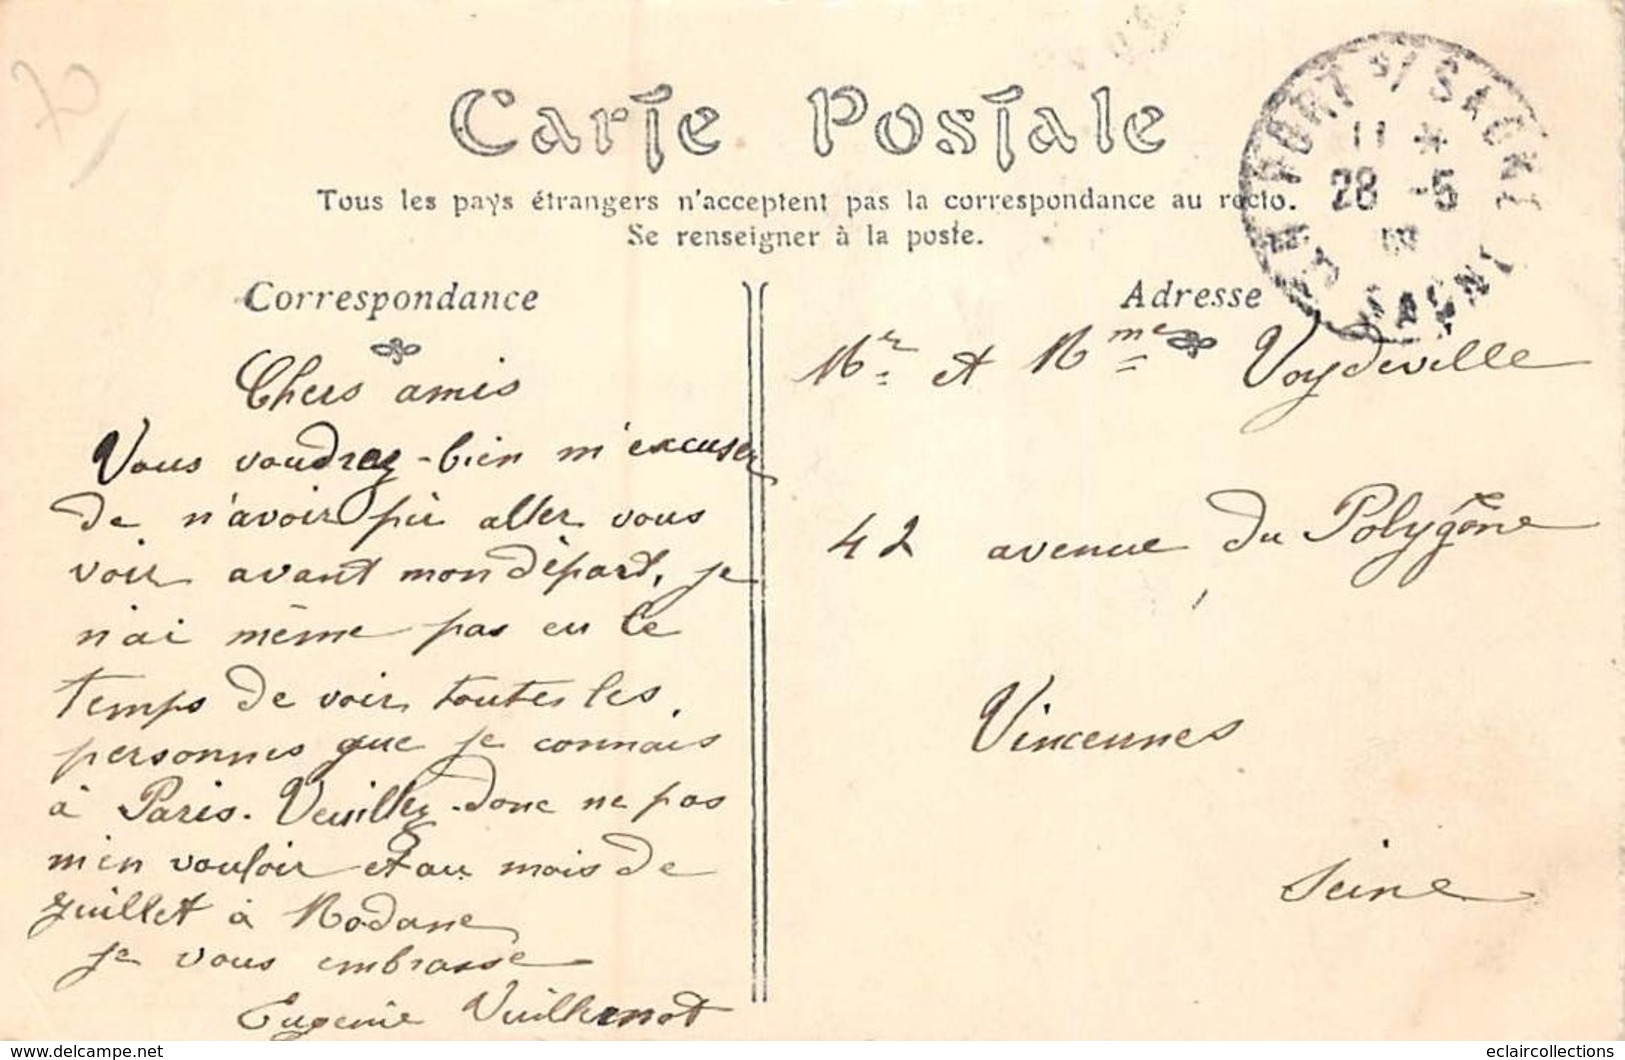 Carte Postale
Tous les pays étrangers n'acceptent pas la correspondance au recto.
Se renseigner à la poste.
Correspondance
Chers amis
Vous voudrez-bien m'excuser
de n'avoir pû aller vous
voir avant mon départ, je
n'ai même pas eu le
temps de voir toutes les
personnes que je connais
à Paris. Veuillez-donc ne pas
m'en vouloir et au mois de
juillet à Modane
je vous embrasse
Eugenie Vuillemot
Adresse
Mr et Mme Voydeville
42 avenue du Polygône
Vincennes
Seine
PORT S/ SAONE
11 *
28 -5
SAONE
eclaircollections
www.delcampe.net